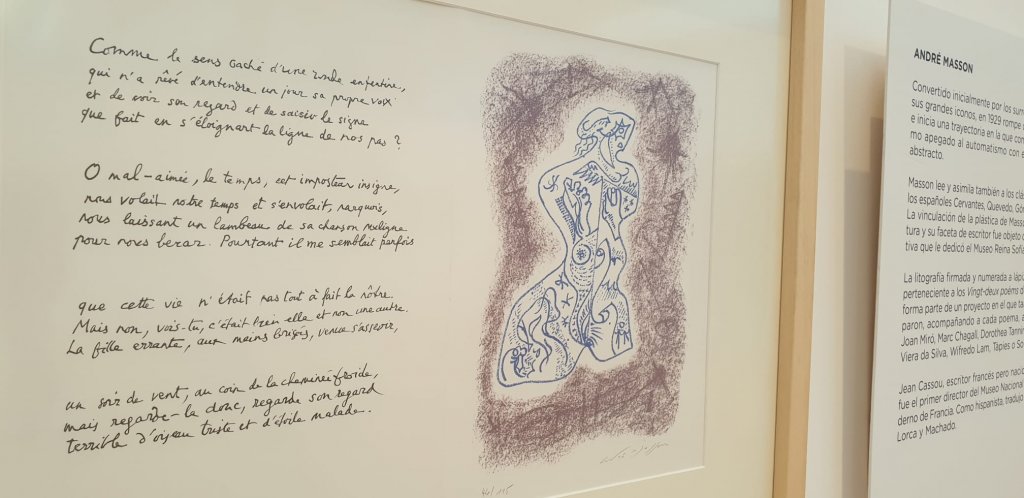 Comme le sens caché d'une ronde enfantine,
qui n'a rêvé d'entendre un jour sa propre voix
et de voir son regard et de saisir le signe
que fait en s'éloignant la ligne de nos pas ?
O mal-aimée, le temps, cet imposteur insigne,
nous volait notre temps et s'envolait, narquois,
nous laissant un lambeau de sa chanson maligne
pour nous bercer. Pourtant il me semblait parfois
que cette vie n'était pas tout à fait la nôtre.
Mais non, vois-tu, c'était bien elle et non une autre.
La fille errante, aux mains brisées, venue s'asseoir,
un soir de vent, au coin de la cheminée froide,
mais regarde-la donc, regarde son regard
terrible d'oiseau triste et d'étoile malade.
46/115
ANDRÉ MASSON
Convertido inicialmente por los surr
sus grandes iconos, en 1929 rompe
e inicia una trayectoria en la que con
mo apegado al automatismo con e
abstracto.
Masson lee y asimila también a los clá
los españoles Cervantes, Quevedo, Gón
La vinculación de la plástica de Mass
tura y su faceta de escritor fue objeto
tiva que le dedicó el Museo Reina Sofía
La litografía firmada y numerada a lápi
perteneciente a los Vingt-deux poèms d
forma parte de un proyecto en el que ta
paron, acompañando a cada poema, a
Joan Miró, Marc Chagall, Dorothea Tanni
Viera da Silva, Wifredo Lam, Tàpies o So
Jean Cassou, escritor francés pero nacid
fue el primer director del Museo Nacional
derno de Francia. Como hispanista, tradujo
Lorca y Machado.